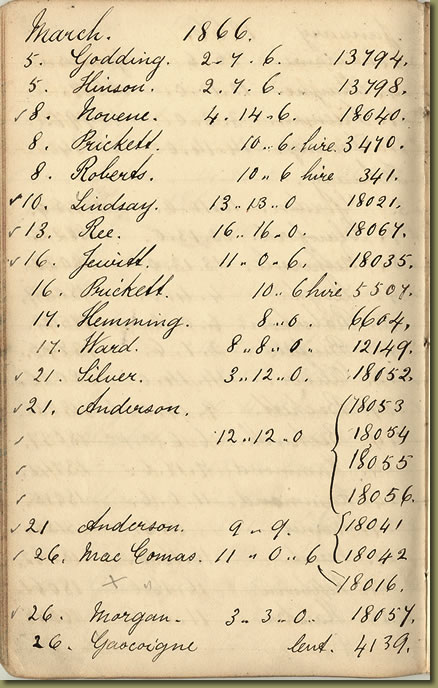 March. 1866.
5. Godding. 2.7.6. 13794.
5. Hinson. 2.7.6. 13798.
✓8. Novene. 4.14.6. 18040.
8. Prickett. 10..6. hire. 3470.
8. Roberts. 10..6 hire 341.
✓10. Lindsay. 13..13..0 18021.
✓13. Ree. 16..16..0. 18067.
✓16. Jewitt. 11..0..6. 18035.
16. Prickett. 10..6 hire 5507.
17. Hemming. 8..0 6604.
17. Ward. 8..8..0.. 12149.
✓21. Silver. 3..12..0. 18052.
✓21. Anderson. 18053
✓ 12..12..0 18054
✓ 18055
✓ 18056.
✓21 Anderson. 9..9. 18041
✓26. Mac Comas. 11..0..6 18042
× ✓ 18016.
✓26. Morgan. 3..3..0.. 18057.
26. Gascoigne lent. 4139.